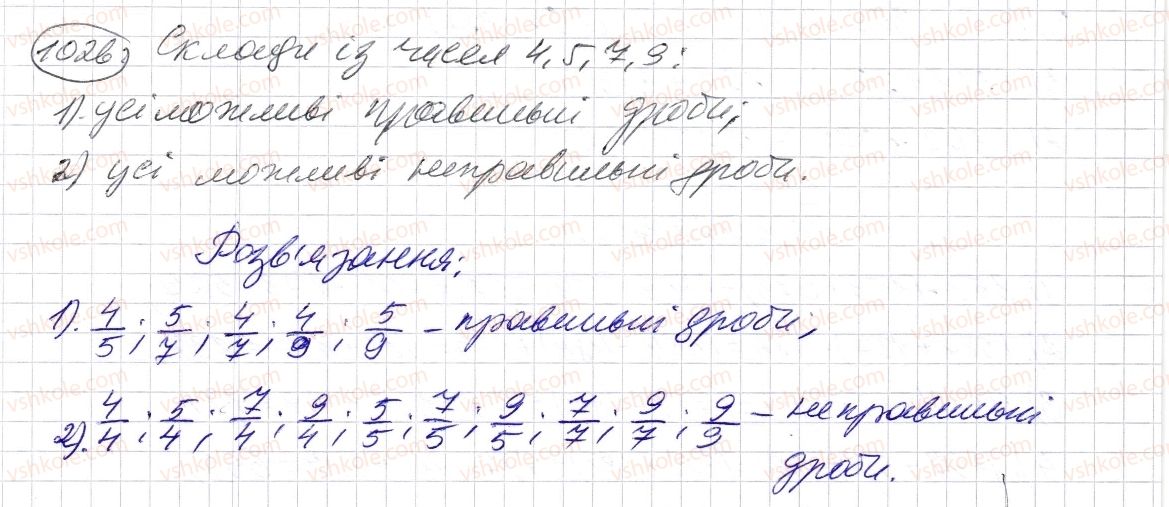 1026) Склади із чисел 4, 5, 7, 9:
1). усі можливі правильні дроби;
2) усі можливі неправильні дроби.
Розв'язання:
1). 4/5; 5/7; 4/7; 4/9; 5/9 – правильні дроби;
2). 4/4; 5/4; 7/4; 9/4; 5/5; 7/5; 9/5; 7/7; 9/7; 9/9 – неправильні
дроби.